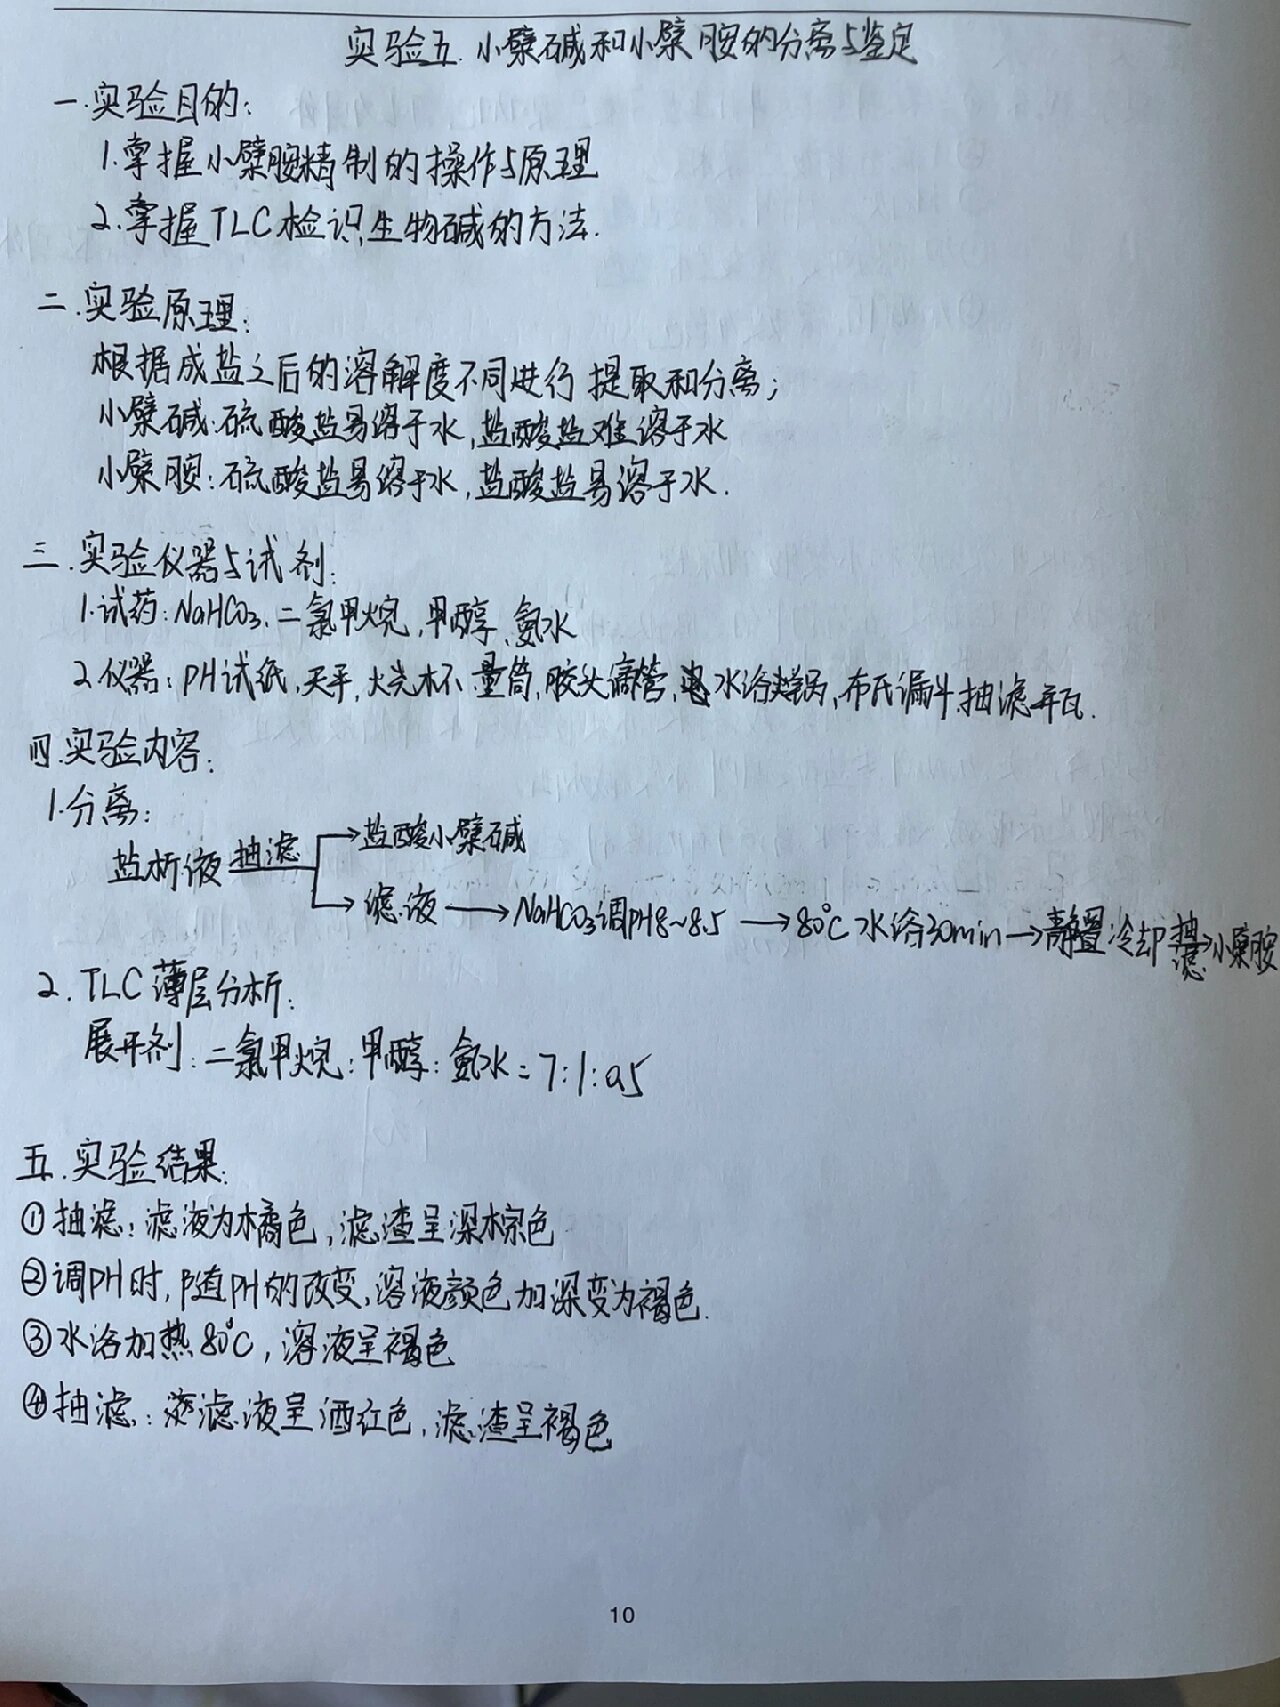 实验五.小檗碱和小檗胺的分离与鉴定
一.实验目的:
1.掌握小檗胺精制的操作与原理
2.掌握TLC检识生物碱的方法.
二.实验原理:
根据成盐之后的溶解度不同进行提取和分离;
小檗碱:硫酸盐易溶于水,盐酸盐难溶于水
小檗胺:硫酸盐易溶于水,盐酸盐易溶于水.
三.实验仪器与试剂:
1.试药:NaHCO3、二氯甲烷,甲醇、氨水
2.仪器:PH试纸,天平,烧杯、量筒,胶头滴管,水浴锅,布氏漏斗.抽滤瓶.
四.实验内容:
1.分离:
盐析液 抽滤 →盐酸小檗碱
→滤液→NaHCO3调PH8~8.5→80℃水浴30min→静置冷却 抽滤→小檗胺
2.TLC薄层分析:
展开剂:二氯甲烷:甲醇:氨水=7:1:0.5
五.实验结果:
①抽滤:滤液为橘色,滤渣呈深棕色
②调PH时,随PH的改变,溶液颜色加深变为褐色.
③水浴加热80℃,溶液呈褐色
④抽滤:滤液呈酒红色,滤渣呈褐色
10